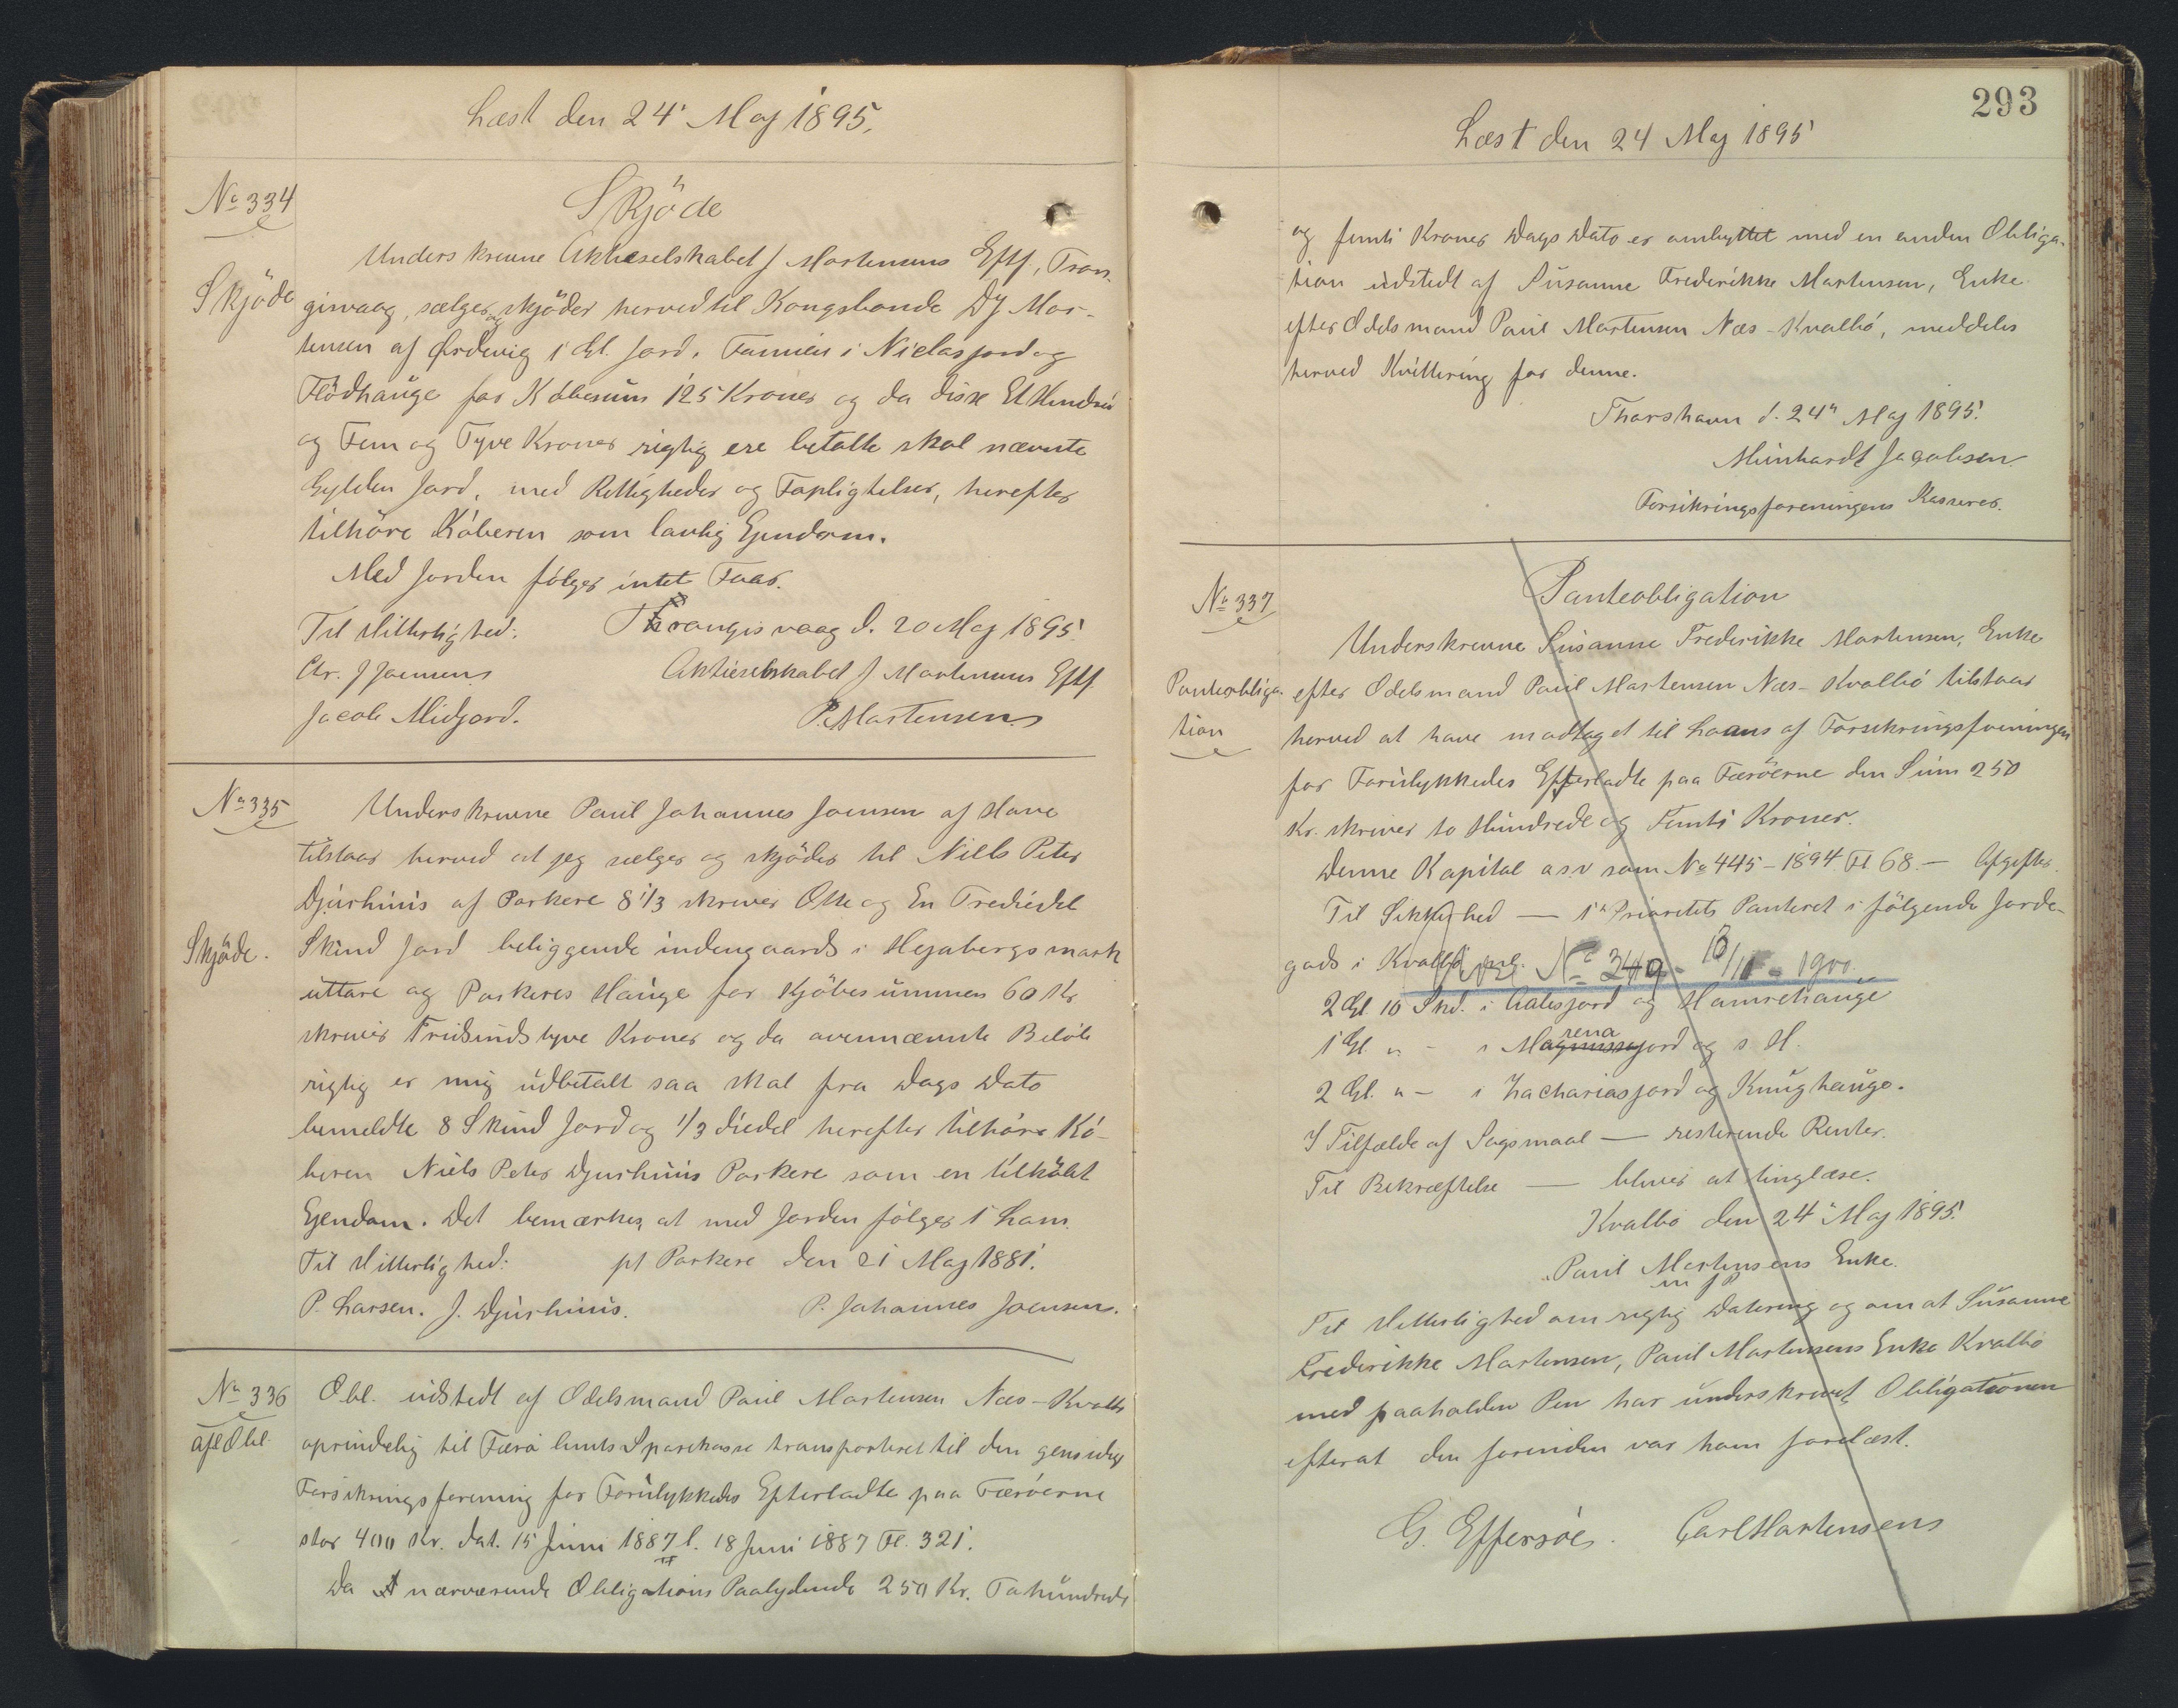 Læst den 24' Maj 1895.
No 334
Skjöde
Skjöde
Underskrevne Aktieselskabet J Mortensens Eftf, Tran-
gisvaag, sælger og skjöder herved til Kongsbonde DJ Mor-
tensen af Ørdevig 1 Gl. Jord, Famien i Niclasjord og
Flödhauge for Köbesum 125 Kroner og da disse Et Hundrede
og Fem og Tyve Kroner rigtig ere betalte skal nævnte
Gylden Jord, med Rettigheder og Fopligtelser, herefter
tilhöre Köberen som lovlig Ejendom.
Med Jorden fölger intet Faar.
Til Vitterlighed: Thrangisvaag d. 20 Maj 1895.
Chr. J Joensens Aktieselskabet J Mortensens Eftf.
Jacob Midjord. P. Mortensen
No 335
Skjöde.
Underskrevne Poul Johannes Joensen af Hove
tilstaar herved at jeg sælger og skjöder til Niels Peter
Djurhuus af Porkere 8 1/3 skriver Otte og En Trediedel
Skind Jord beliggende indengaards i Hejabergs mark
uttare og Porkeres Hauge for Kjöbesummen 60 Kr.
skriver Tresindstyve Kroner og da ovennævnte Belöb
rigtig er mig udbetalt saa skal fra Dags Dato
bemeldte 8 Skind Jord og 1/3 diedel herefter tilhöre Kö-
beren Niels Peter Djurhuus Porkere som en tilköbt
Ejendom. Det bemærkes, at med Jorden fölger 1 Lam.
Til Vitterlighed: pt Porkere den 21 Maj 1881.
P. Larsen. J. Djurhuus. P. Johannes Joensen.
No 336
afl Obl.
Obl. udstedt af Odelsmand Poul Mortensen Næs-Kvalbö
oprindelig til Færö Amts Sparekasse transporteret til den gensidige
Forsikringsforening for Forulykkedes Efterladte paa Færöerne
stor 400 Kr. dat. 15 Juni 1887 l. 18 Juni 1887 Fl. 321.
Da nærværende Obligations Paalydende 250 Kr. Tohundrede
293
Læst den 24 Maj 1895
og femti Kroner Dags Dato er ombyttet med en anden Obliga-
tion udstedt af Susanne Frederikke Mortensen, Enke
efter Odelsmand Poul Mortensen Næs-Kvalbö, meddeles
herved Kvittering for denne.
Thorshavn d. 24' Maj 1895.
Meinhardt Jacobsen
Forsikringsforeningens Kasserer.
No 337
Panteobliga-
tion
Panteobligation
Underskrevne Susanne Frederikke Mortensen, Enke
efter Odelsmand Poul Mortensen Næs-Kvalbö tilstaar
herved at have modtaget til Laans af Forsikringsforeningen
for Forulykkedes Efterladte paa Færöerne den Sum 250
Kr. skriver to Hundrede og Femti Kroner.
Denne Kapital o.s.v som No 445-1894 Fl 68.— Afgifter.
Til Sikkerhed — 1' Prioritets Panteret i fölgende Jorde-
gods i Kvalbö
No 340 - 18/11 - 1900.
2 Gl 10 Skd. i Aalesjord og Hamrehauge
1 Gl. " - i Magnussejord rena og s H.
2 Gl. " - i Zachariasjord og Knughauge.
I Tilfælde af Sagsmaal — resterende Renter.
Til Bekræftelse — bliver at tinglæse.
Kvalbö den 24' Maj 1895.
Poul Mortensens Enke.
m f P
Til Vitterlighed om rigtig Datering og om at Susanne
Frederikke Mortensen, Poul Mortensens Enke Kvalbö
med paaholden Pen har underskrevet Obligationen
efterat den forinden var ham forelæst.
G. Effersöe. Carl Mortensens